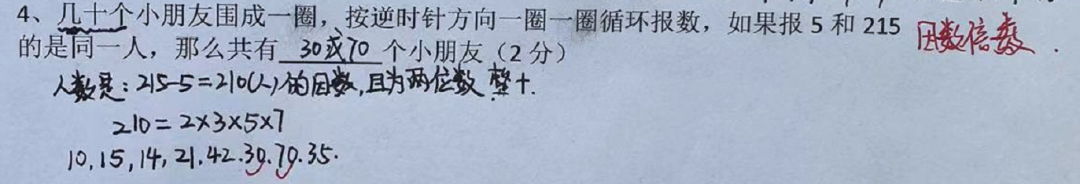 4、几十个小朋友围成一圈，按逆时针方向一圈一圈循环报数，如果报 5 和 215 因数倍数
的是同一人，那么共有 30或70 个小朋友（2 分）
人数是：215-5=210(人)的因数，且为两位数 整十.
210=2×3×5×7
10,15,14,21.42.30.70.35.